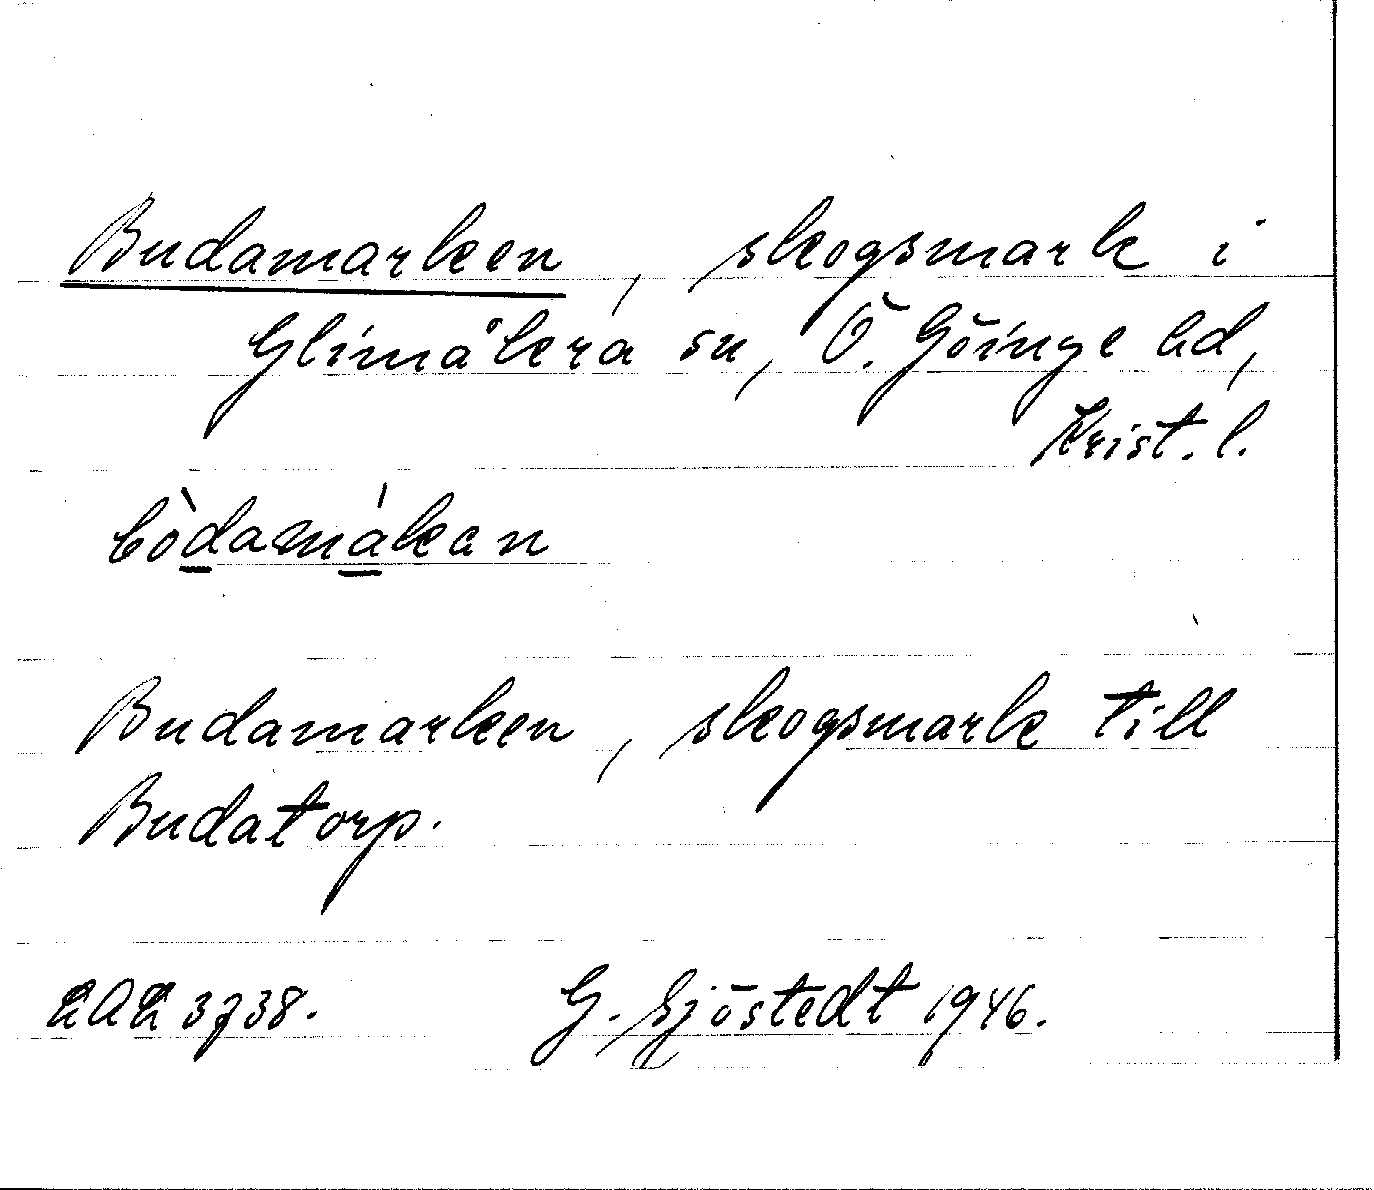 Budamarken, skogsmark i
Glimåkra sn, Ö. Göinge hd,
Krist. l.
bòdamákan
Budamarken, skogsmark till
Budatorp.
3738. G. Sjöstedt 1946.